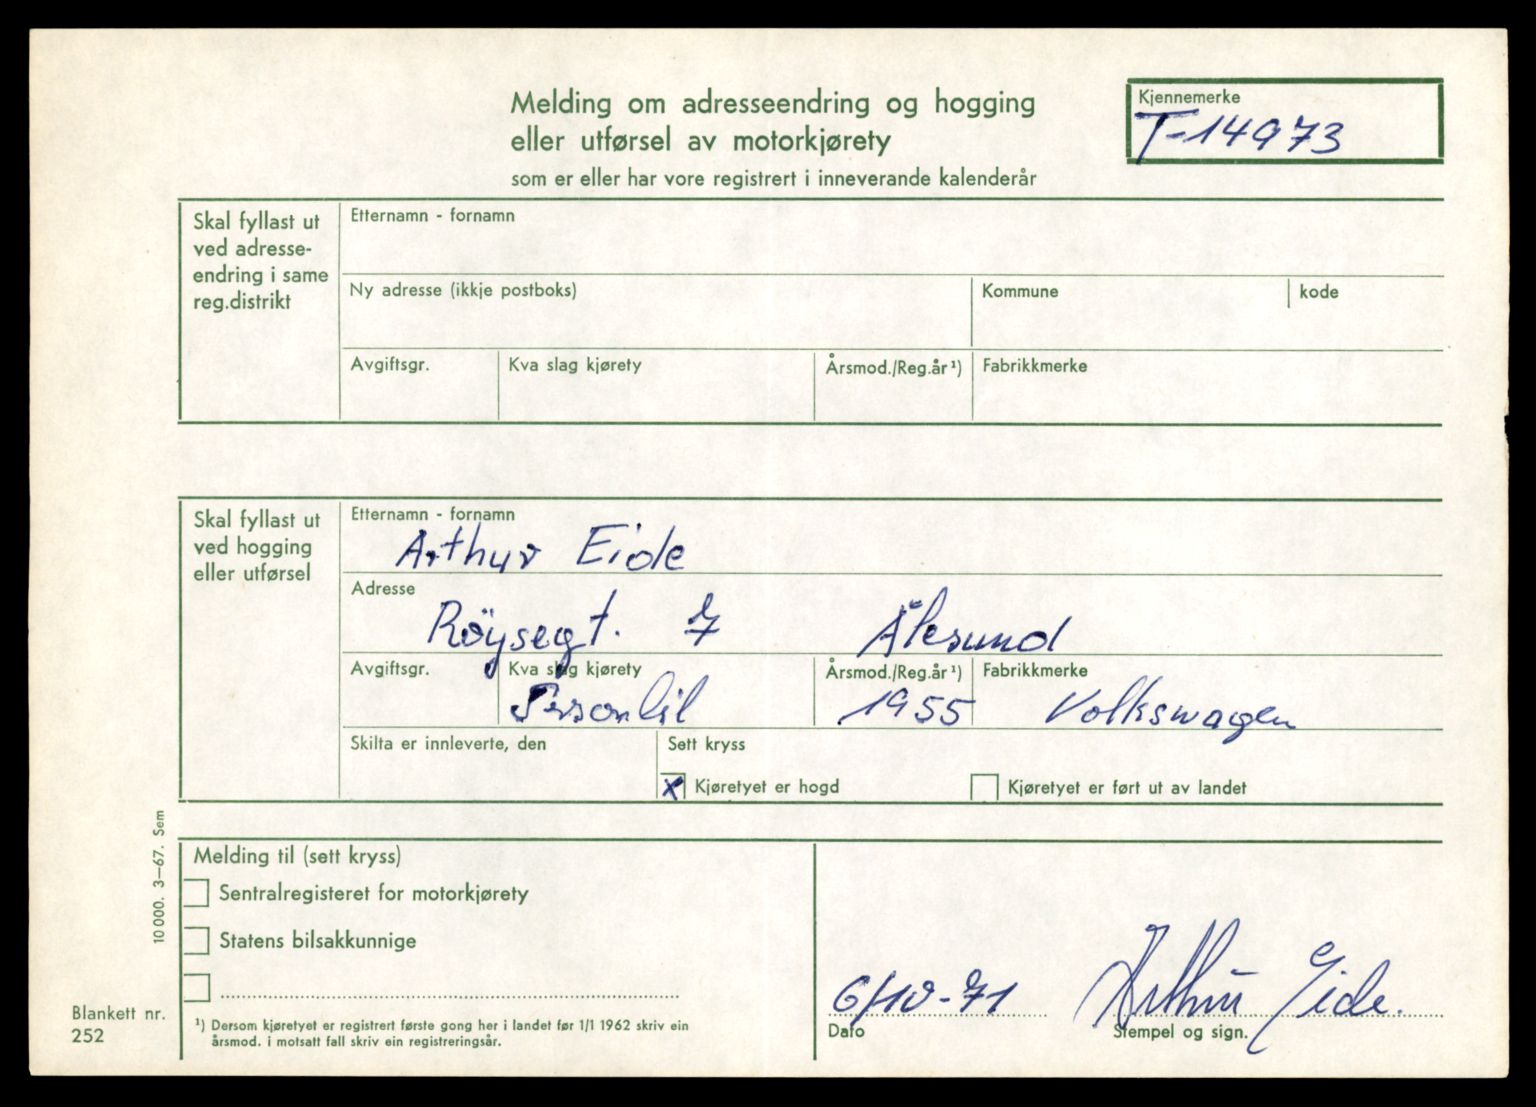 Melding om adresseendring og hogging
eller utførsel av motorkjørety
som er eller har vore registrert i inneverande kalenderår
Kjennemerke
T-14973
Skal fyllast ut
ved adresse-
endring i same
reg.distrikt
Etternamn - fornamn
Ny adresse (ikkje postboks)
Kommune
kode
Avgiftsgr.
Kva slag kjørety
Årsmod./Reg.år ¹)
Fabrikkmerke
Skal fyllast ut
ved hogging
eller utførsel
Etternamn - fornamn
Arthur Eide
Adresse
Röysegt. 7 Ålesund
Avgiftsgr.
Kva slag kjørety
Personbil
Årsmod./Reg.år ¹)
1955
Fabrikkmerke
Volkswagen
Skilta er innleverte, den
Sett kryss
x Kjøretyet er hogd
Kjøretyet er ført ut av landet
Melding til (sett kryss)
Sentralregisteret for motorkjørety
Statens bilsakkunnige
¹) Dersom kjøretyet er registrert første gong her i landet før 1/1 1962 skriv ein
årsmod. i motsatt fall skriv ein registreringsår.
6/10-71
Dato
Arthur Eide.
Stempel og sign.
10 000. 3—67. Sem
Blankett nr.
252